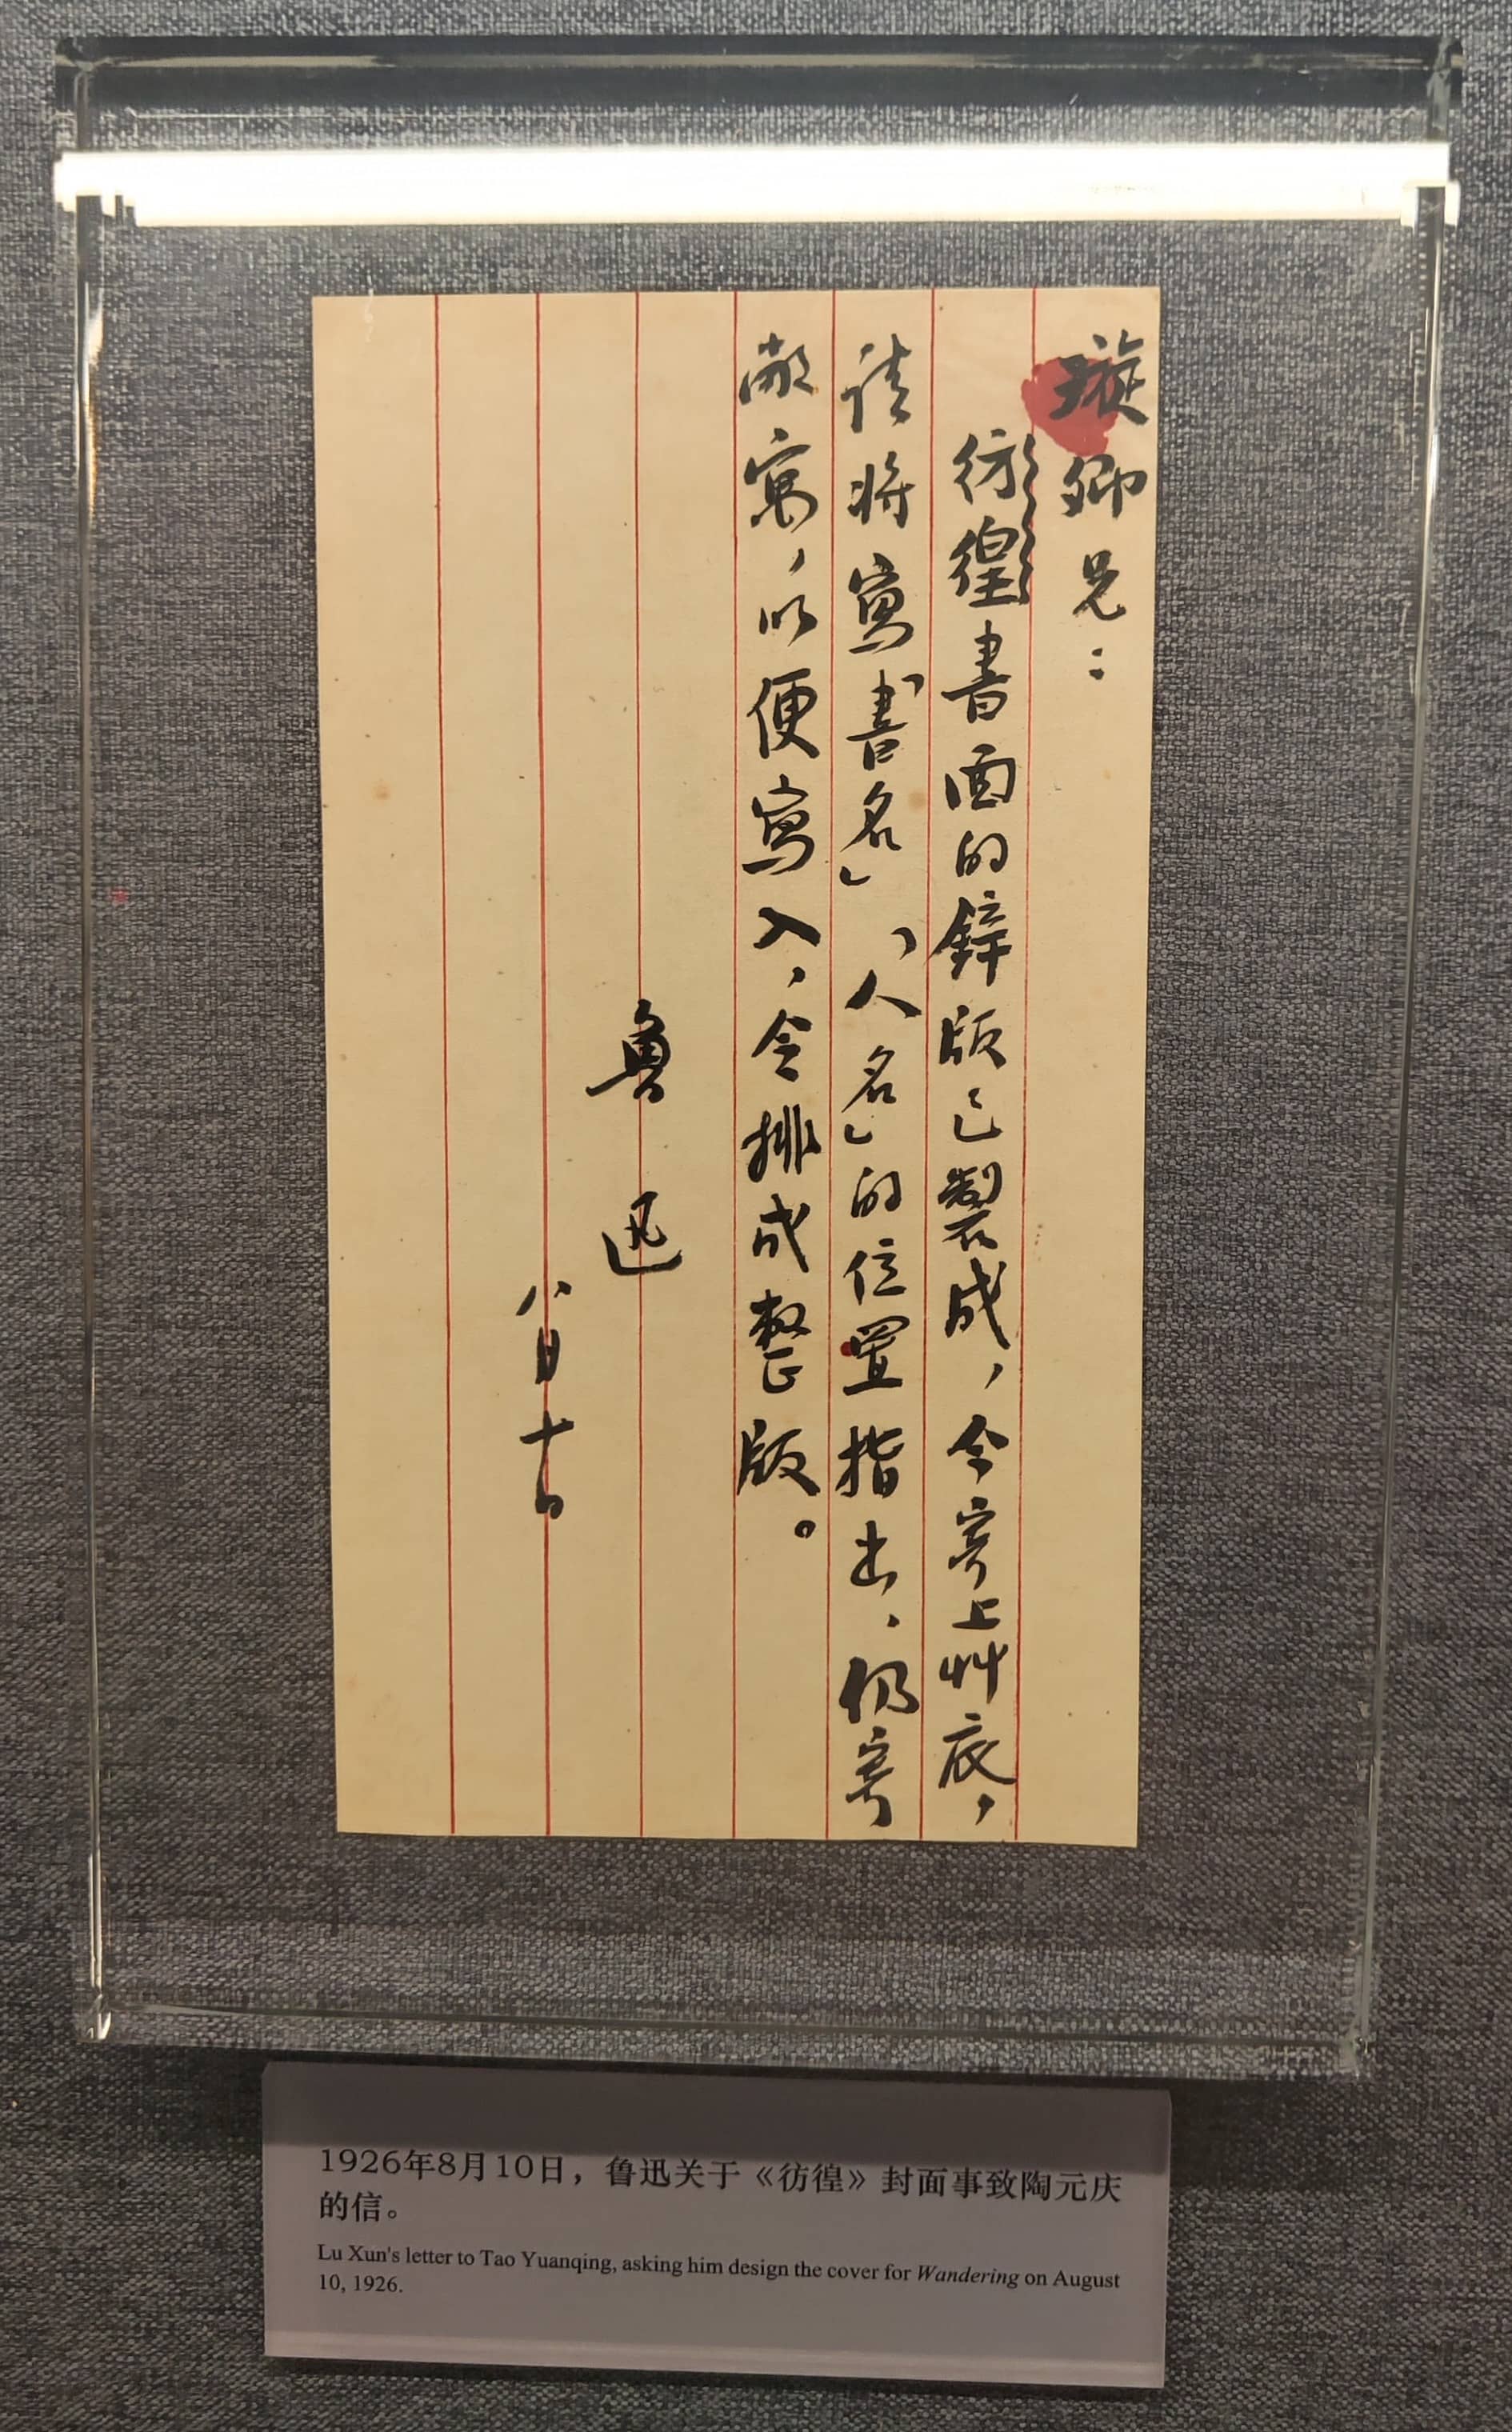 璇卿兄：
彷徨書面的鋅版已製成，今寄上艸底，
請將寫「書名」「人名」的位置指出，仍寄
敝寓，以便寫入，令排成整版。
魯迅
八月十日
1926年8月10日，鲁迅关于《彷徨》封面事致陶元庆
的信。
Lu Xun's letter to Tao Yuanqing, asking him design the cover for Wandering on August
10, 1926.